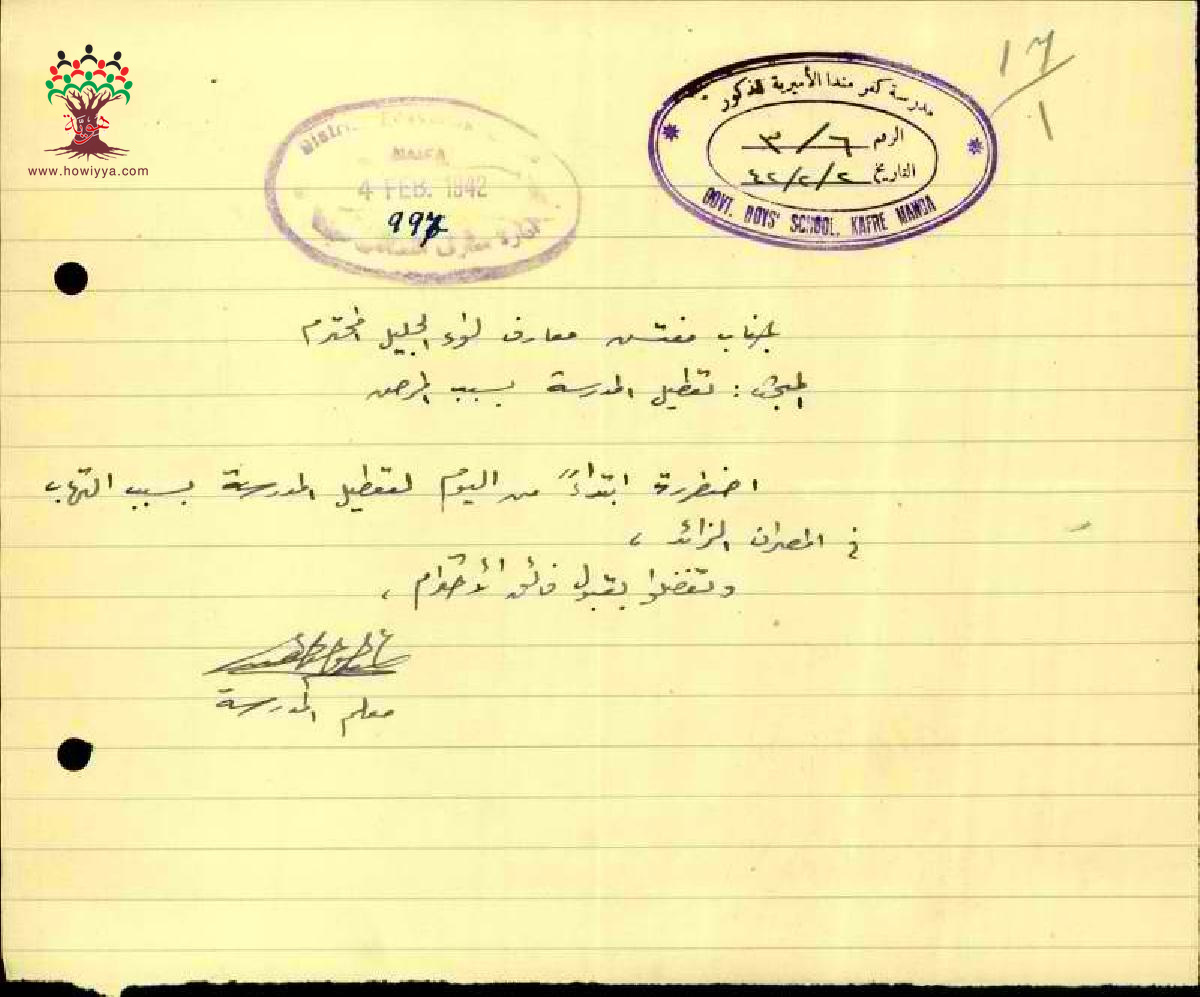 هوية
www.howiyya.com
مدرسة كفر مندا الأميرية للذكور
الرقم ٣/٦
التاريخ ٤٢/٢/٢
GOVT. BOYS' SCHOOL, KAFRE MANDA
١٦/١
District Education
HAIFA
4 FEB. 1942
997
ادارة معارف
لجناب مفتش معارف لواء الجليل المحترم
المبحث : تعطيل المدرسة بسبب المرض
اضطررة ابتداءً من اليوم لتعطيل المدرسة بسبب التهاب
في المصران الزائد ،
وتفضلوا بقبول فائق الأحترام ،
معلم المدرسة